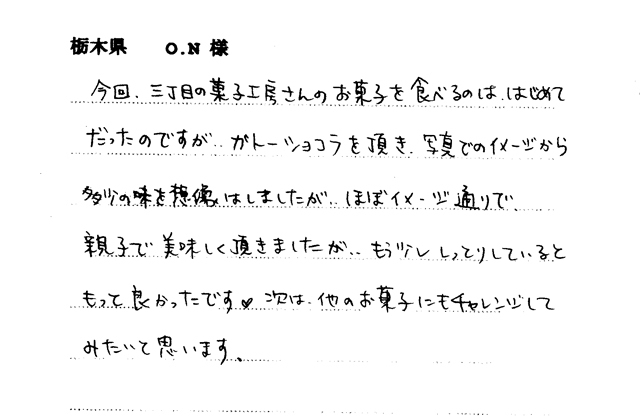 栃木県 O.N 様
今回、三丁目の菓子工房さんのお菓子を食べるのは、はじめて
だったのですが、ガトーショコラを頂き、写真でのイメージから
多少の味を想像はしましたが、ほぼイメージ通りで、
親子で美味しく頂きましたが、もう少ししっとりしていると
もっと良かったです♥ 次は、他のお菓子にもチャレンジして
みたいと思います。